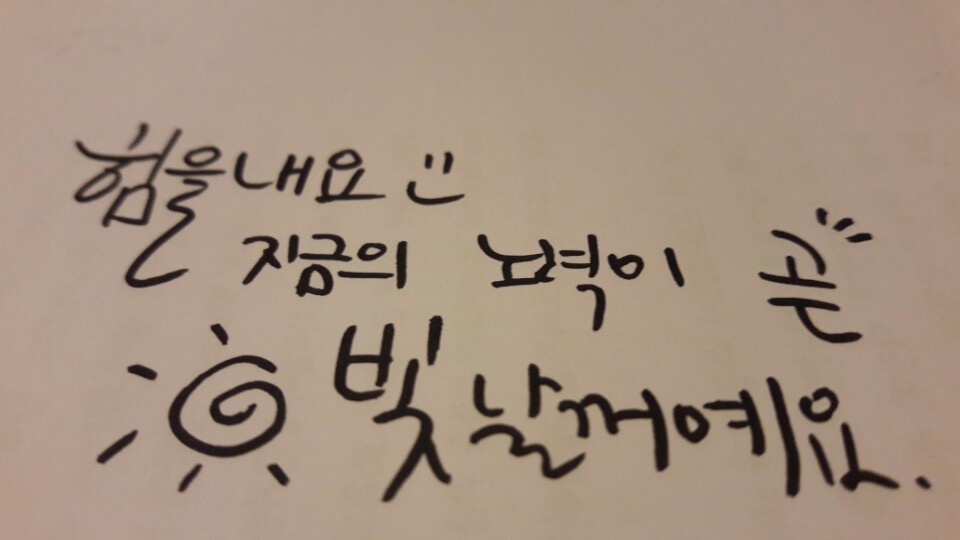 힘을내요
지금의 노력이 곧
빛날꺼예요.